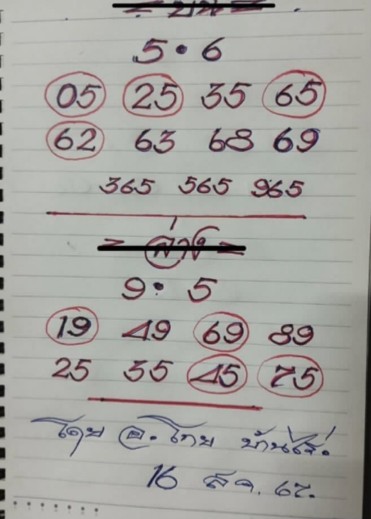 - บน -
5 • 6
05 25 35 65
62 63 68 69
365 565 965
- ล่าง -
9 • 5
19 49 69 89
25 35 45 75
โดย อ. โกย บ้านไร่.
16 ส.ค. 67.